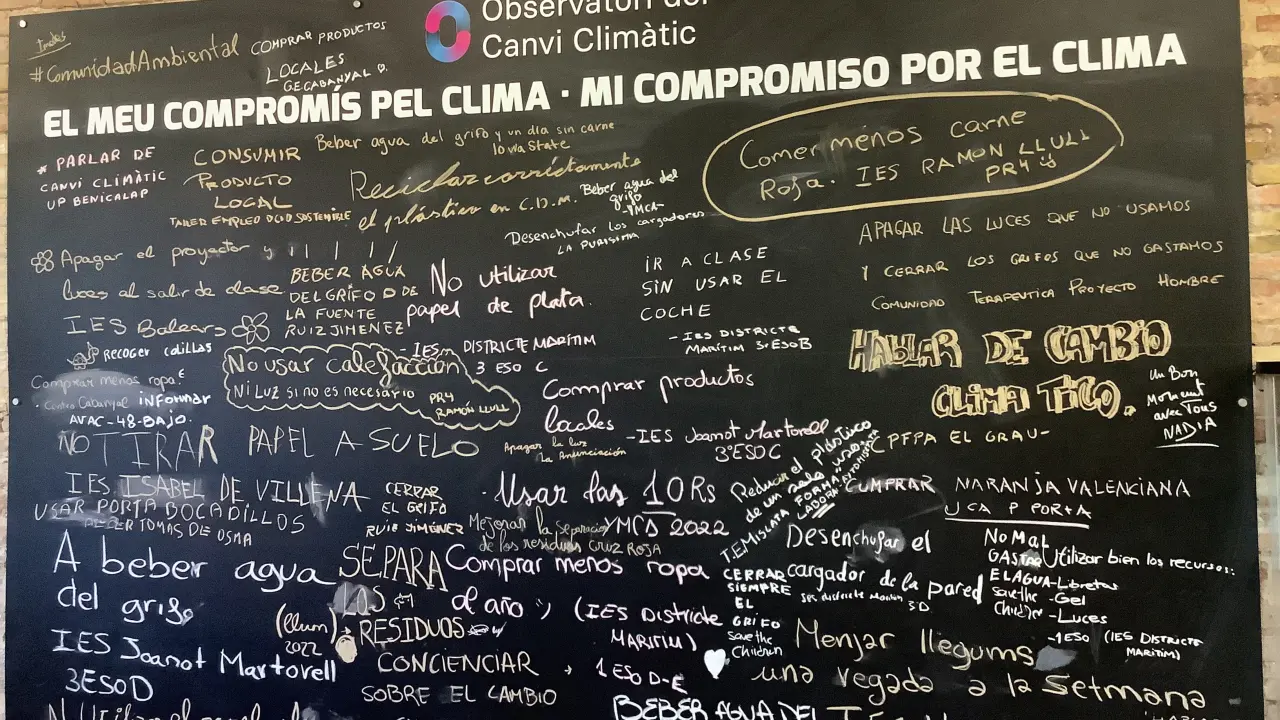 Observatori del
Canvi Climàtic
#ComunidadAmbiental
COMPRAR PRODUCTOS
LOCALES
EL MEU COMPROMÍS PEL CLIMA · MI COMPROMISO POR EL CLIMA
* PARLAR DE
CANVI CLIMÀTIC
UP BENICALAP
CONSUMIR
PRODUCTO
LOCAL
TALLER EMPLEO OCIO SOSTENIBLE
Beber agua del grifo y un día sin carne
Iowa State
Reciclar corréctamente
el plástico en C.D.M.
Beber agua del
grifo
-YMCA-
Desenchufar los cargadores
LA PURISIMA
Comer menos carne
Roja. IES RAMON LLULL
PR4
APAGAR LAS LUCES QUE NO USAMOS
Y CERRAR LOS GRIFOS QUE NO GASTAMOS
COMUNIDAD TERAPEUTICA PROYECTO HOMBRE
Apagar el proyector y
luces al salir de clase
IES Balears
BEBER AGUA
DEL GRIFO O DE
LA FUENTE
RUIZ JIMENEZ
No utilizar
papel de plata.
- IES DISTRICTE MARÍTIM
3 ESO C
IR A CLASE
SIN USAR EL
COCHE
- IES DISTRICTE
MARÍTIM 3ºESOB
HABLAR DE CAMBIO
CLIMATICO.
CPFPA EL GRAU-
Un Bon
Moment
avec Tous
NADIA
RECOGER COLILLAS
Comprar menos ropa!
Centro Cabanyal informar
AVAC-48-BAJO.
No usar calefacción
NI LUZ SI NO ES NECESARIO
PR4
RAMÓN LLULL
Comprar productos
locales
-IES Joanot Martorell
3ºESO C
Apagar la luz
La Anunciación
NO TIRAR PAPEL A SUELO
IES ISABEL DE VILLENA
USAR PORTA BOCADILLOS
TOMAS DE OSMA
CERRAR
EL GRIFO
RUIZ JIMÉNEZ
· Usar las 10Rs
YMCA 2022
Mejorar la separación
de los residuos CRUZ ROJA
Reducir el plástico
de un solo uso
TEMISLATA
CUMPRAR NARANJA VALENCIANA
UCA P PORTA
A beber agua
del grifo
IES Joanot Martorell
3ESOD
SEPARA
LOS
RESIDUOS
(llum)
2022
Comprar menos ropa
al año :) (IES Districte
MARITIM)
1 ESO D-E
CERRAR
SIEMPRE
EL
GRIFO
Save the
Children
Desenchufar el
cargador de la pared
IES districte Maritim 3D
No MaL
GASTAR
EL AGUA
Save the
Children
Utilizar bien los recursos:
-Libretas
-Gel
-Luces
-1ESO (IES DISTRICTE
MARÍTIM)
Menjar llegums
una vegada a la setmana
CONCIENCIAR
SOBRE EL CAMBIO
BEBER AGUA DEL